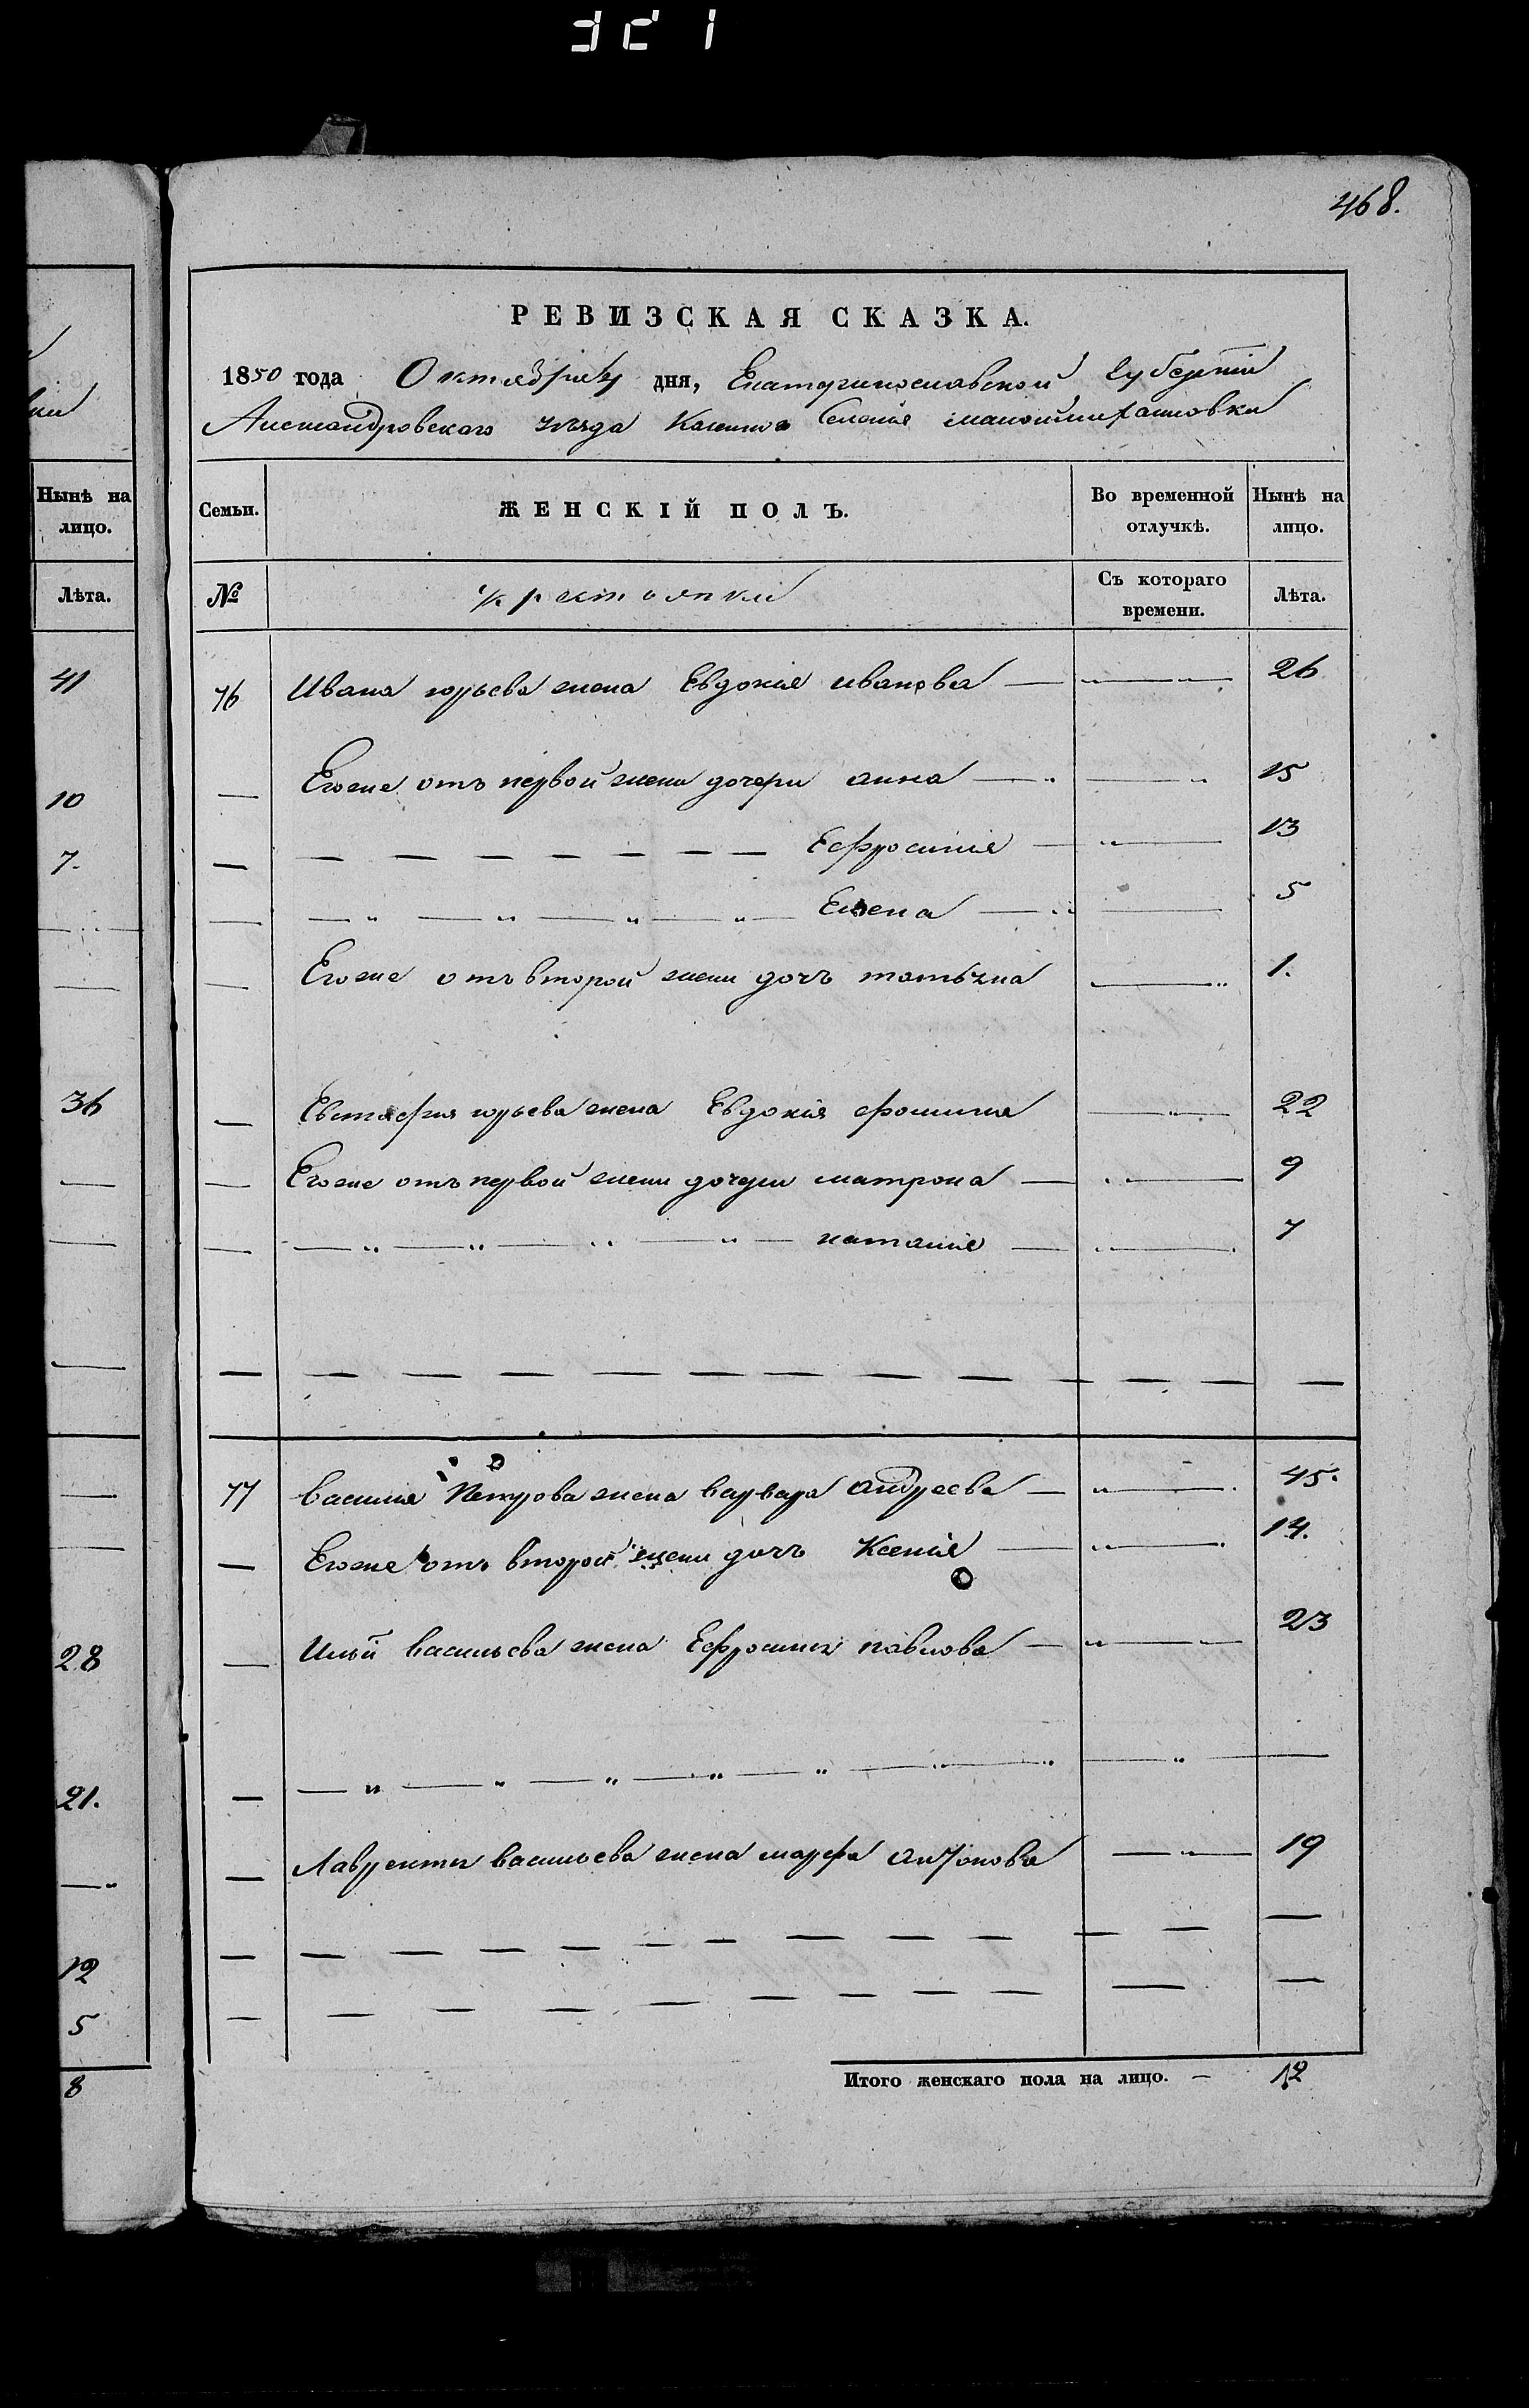 321
468.
РЕВИЗСКАЯ СКАЗКА.
1850 года Октября дня, Екатеринославской Губерніи
Александровского уезда Казенного Селенія малоймихайловки
Нынѣ на лицо.
Лѣта.
41
10
7.
36
28
21.
12
5
8
Семьи. ЖЕНСКІЙ ПОЛЪ. Во временной отлучкѣ. Нынѣ на лицо.
№ крестьянки Съ котораго времени. Лѣта.
76 Ивана юрьева жена Евдокія иванова — 26
— Егоже отъ первой жены дочери анна — 15
— Ефросинія — 13
— Елена — 5
— Егоже отъ второй жены дочь татьяна — 1.
— Евстафия юрьева жена Евдокія фомина — 22
— Егоже отъ первой жены дочери матрона — 9
— наталія — 7
77 василия Петрова жена варвара андреева — 45.
— Егоже отъ второй жены дочь Ксенія — 14.
— Ильи васильева жена Ефросинья павлова — 23
— Лаврентия васильева жена марфа антонова — 19
Итого женскаго пола на лицо. — 12